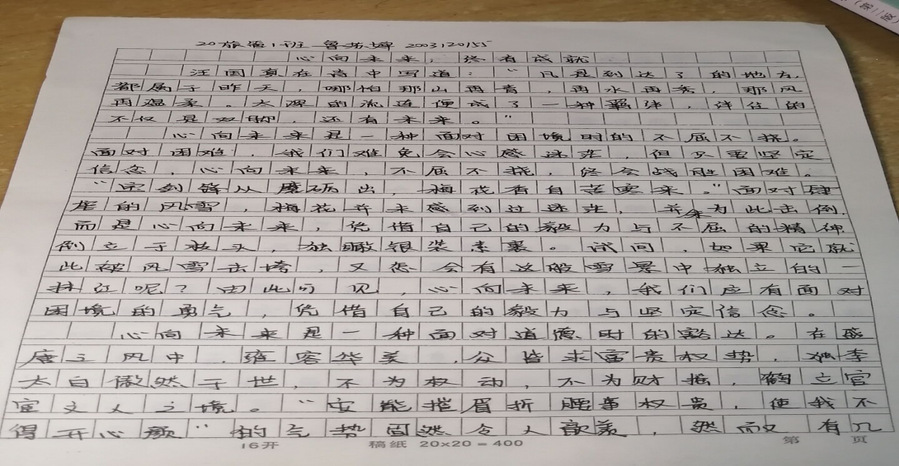 20旅函1班 鲁 2003120155
心向未来，终有成就
汪国真在诗中写道："凡是到达了的地方，
都属于昨天，哪怕那山再青，再水再秀，那风
再温柔。太深的流连便成了一种羁绊，绊住的
不仅是双脚，还有未来。"
心向未来是一种面对困境时的不屈不挠。
面对困难，我们难免会心感迷茫，但只要坚定
信念，心向未来，不屈不挠，终会战胜困难。
"宝剑锋从磨砺出，梅花香自苦寒来。"面对肆
的风雪，梅花并未感到过迷茫，并未为此击倒，
而是心向未来，凭借自己的毅力与不屈的精神
例立于枝头，独瞰银装素裹。试问，如果它就
此被风雪击垮，又怎会有这般雪景中独立的一
抹红呢？由此可见，心向未来，我们应有面对
困境的勇气，凭借自己的毅力与坚定信念。
心向未来是一种面对道德时的豁达。在盛
唐之风中，雍容华美，公皆求富贵权势，唯李
太白傲然于世，不为权动，不为财摇，鹤立官
宦文人之境。"安能摧眉折腰事权贵，使我不
得开心颜"的气势固然令人歆羡，然而又有几
16开 稿纸 20×20=400 第 页